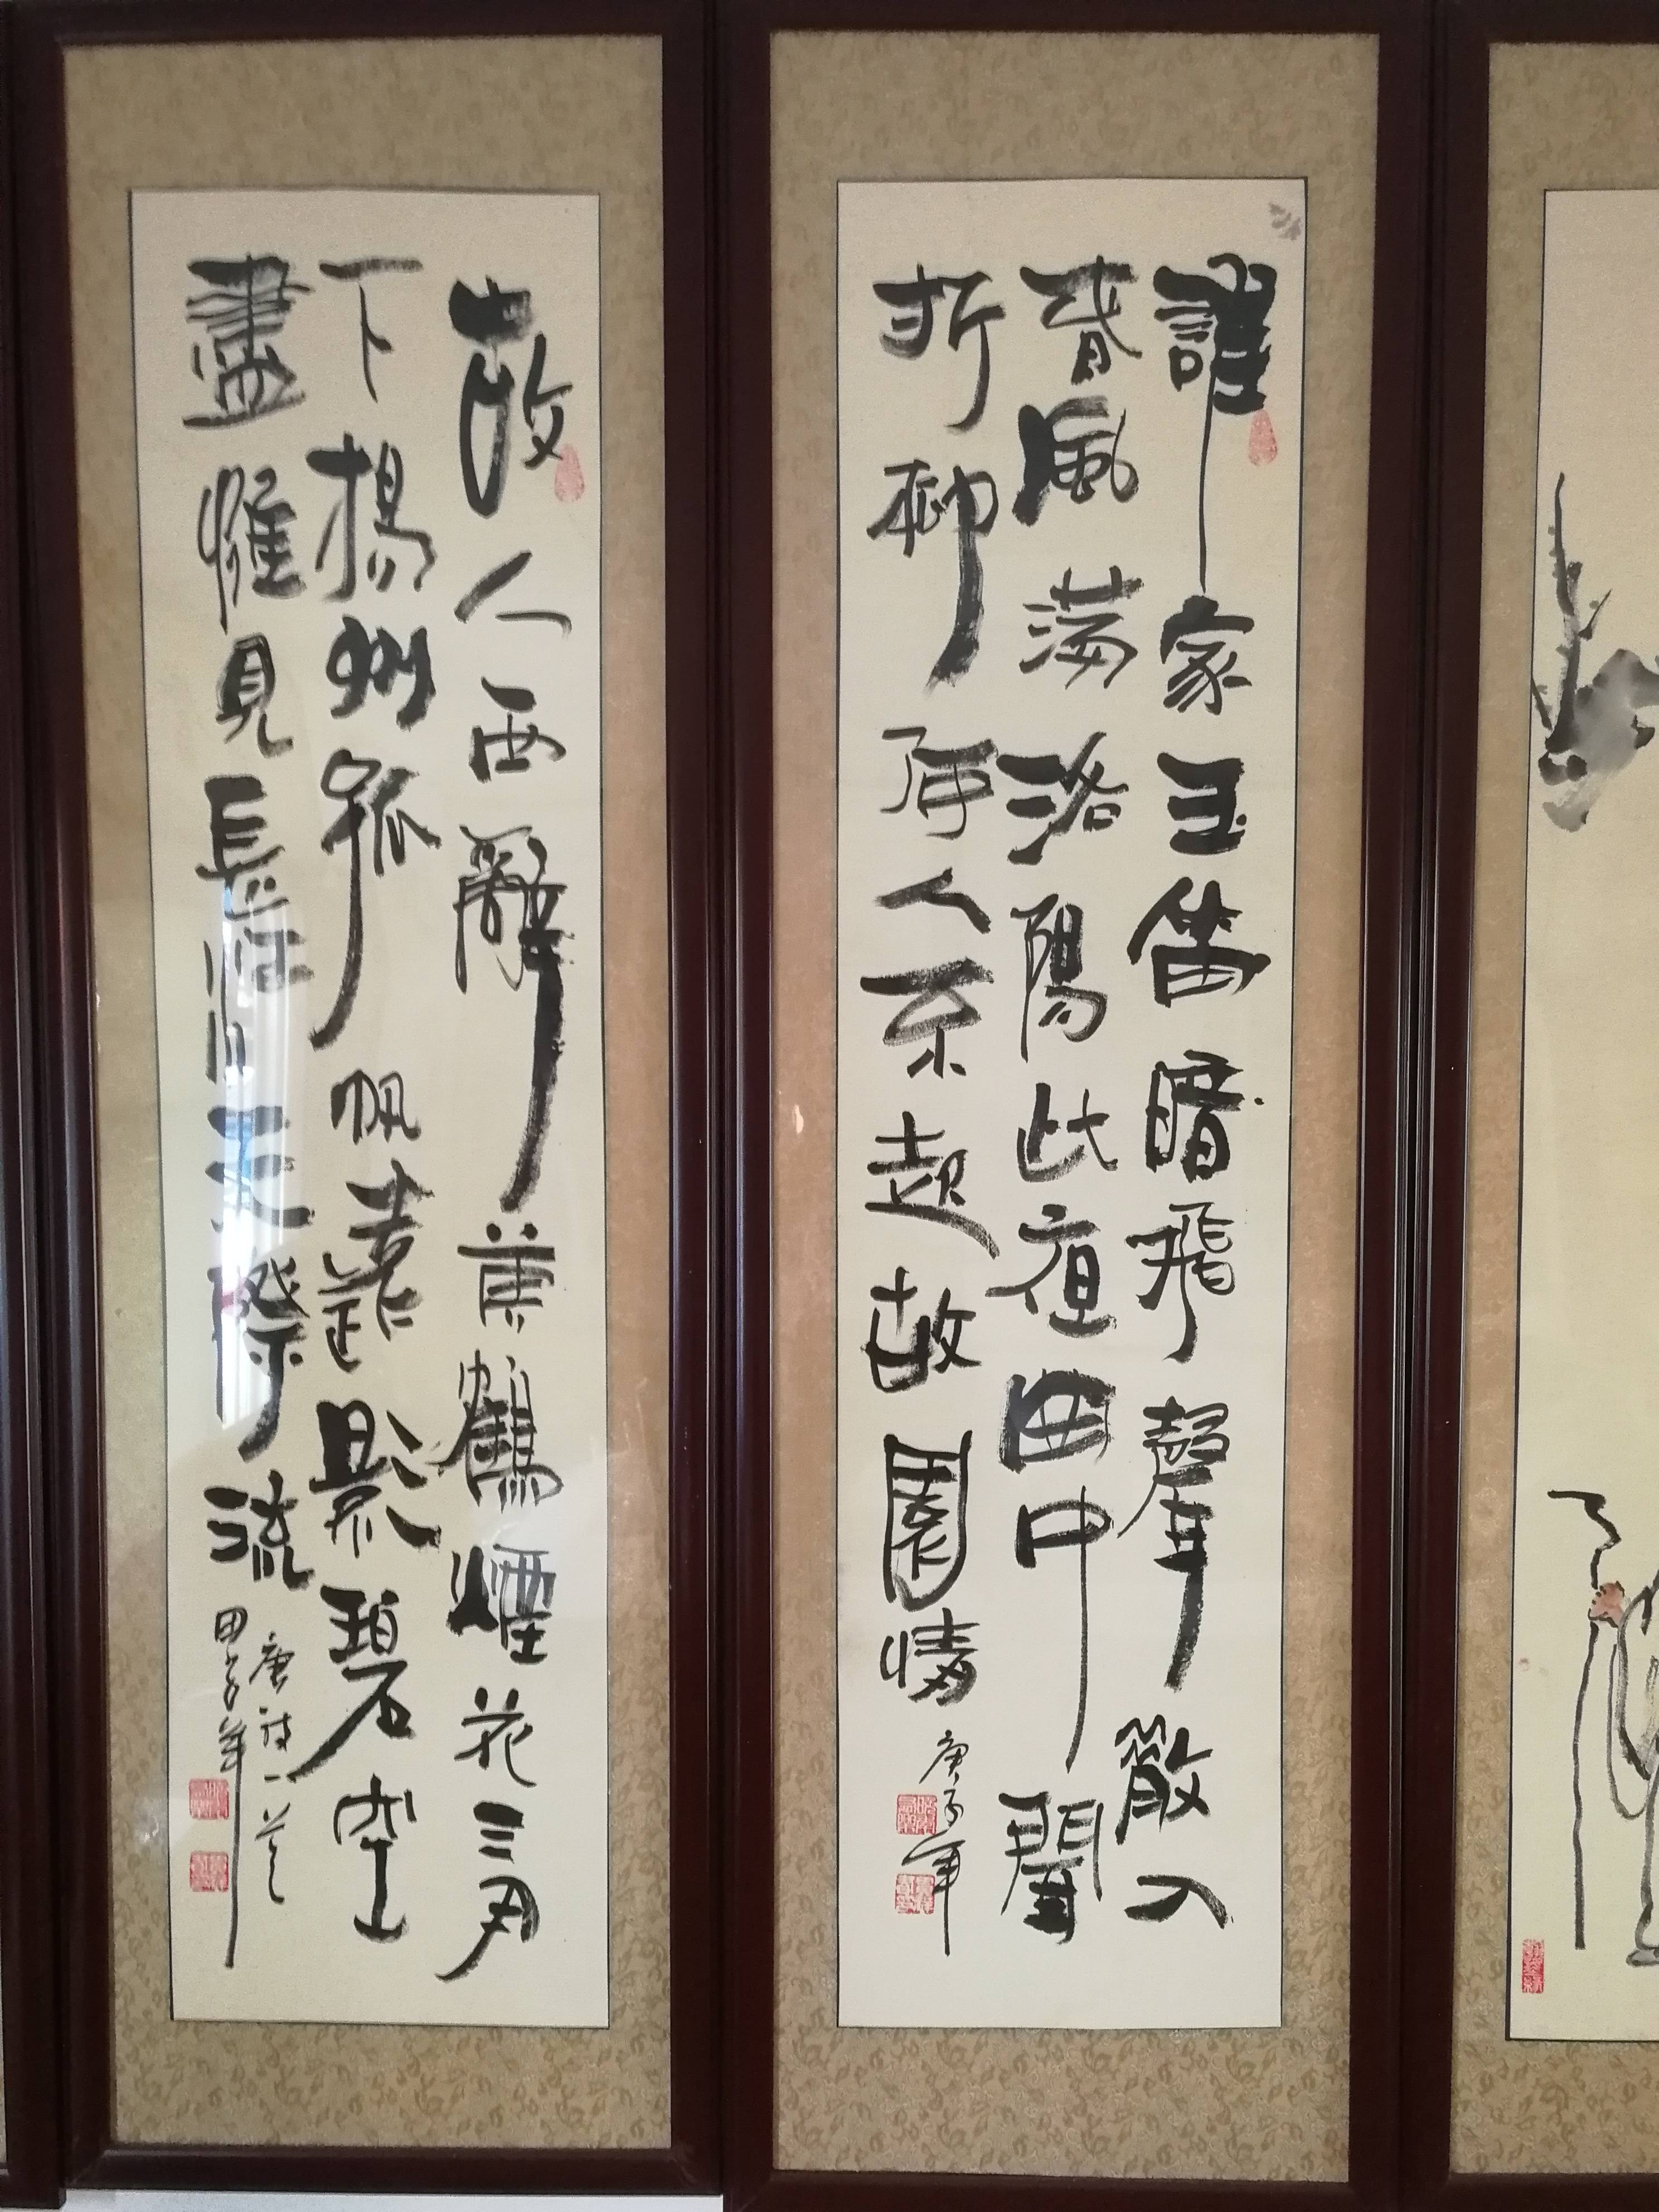 誰家玉笛暗飛聲散入
春風滿洛陽此夜曲中聞
折柳何人不起故園情
庚子年
故人西辭黃鶴煙花三月
下揚州孤帆遠影碧空
盡惟見長江天際流
唐詩一首